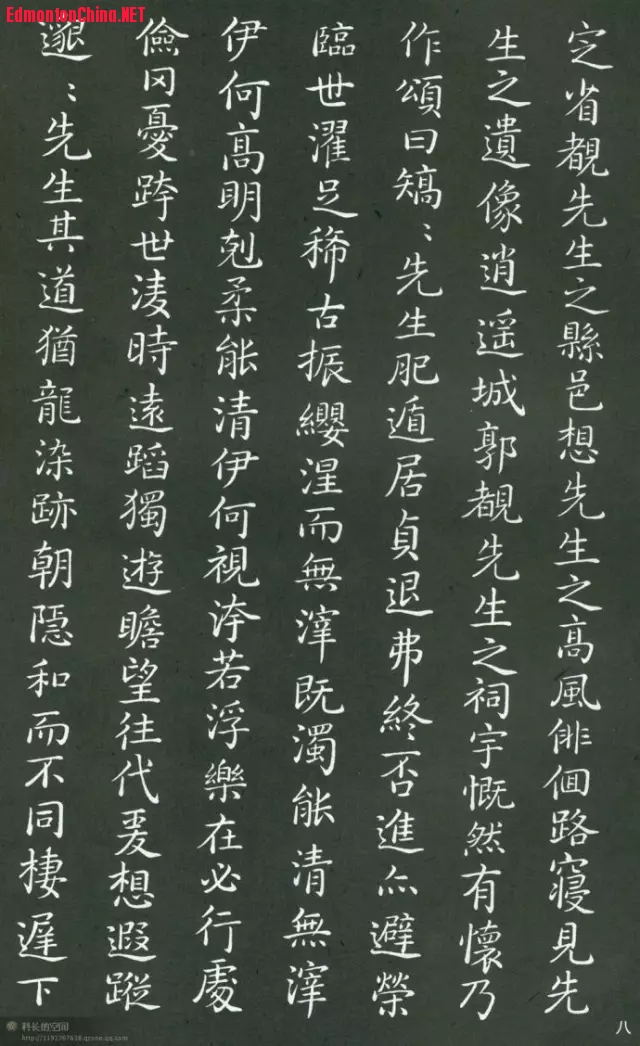 EdmontonChina.NET
http://EdmontonChina.NET
定省覩先生之縣邑想先生之高風俳佪路寢見先
生之遺像逍遥城郭覩先生之祠宇慨然有懷乃
作頌曰矯〻先生肥遁居貞退弗終否進亦避榮
臨世濯足稀古振纓涅而無滓既濁能清無滓
伊何高明剋柔能清伊何視汚若浮樂在必行處
儉冈憂跨世凌時遠蹈獨遊瞻望往代爰想遐蹤
邈〻先生其道猶龍染跡朝隱和而不同棲遲下
八
科长的空间